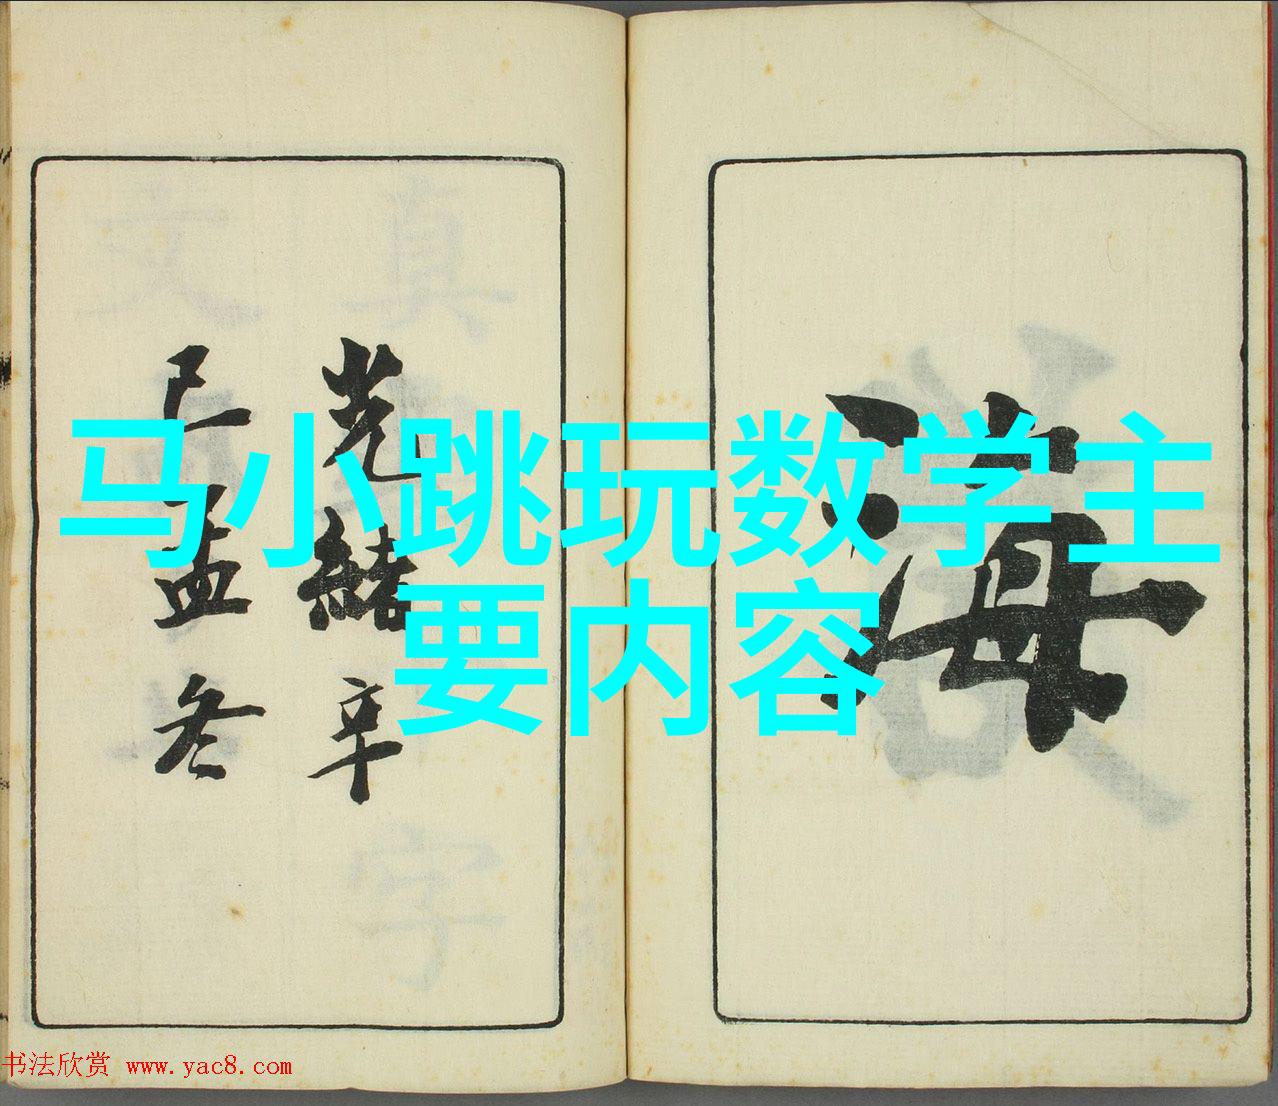 马小跳玩数学主
要内容
海
光緒辛
巳孟冬
书法欣赏 www.yac8.com